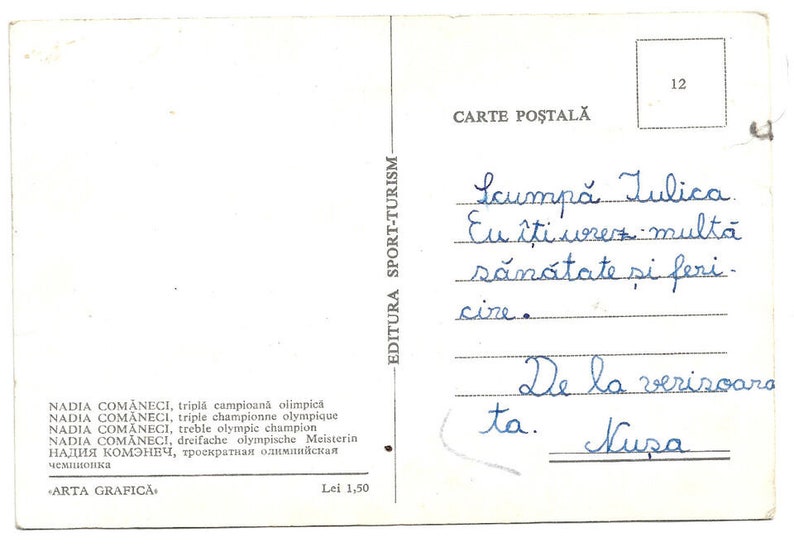 NADIA COMĂNECI, triplă campioană olimpică
NADIA COMĂNECI, triple championne olympique
NADIA COMĂNECI, treble olympic champion
NADIA COMĂNECI, dreifache olympische Meisterin
НАДИЯ КОМЭНЕЧ, троекратная олимпийская
чемпионка
«ARTA GRAFICĂ» Lei 1,50
EDITURA SPORT-TURISM
12
CARTE POȘTALĂ
Scumpă Iulica
Eu îți urez multă
sănătate și feri-
cire.
De la verisoara
ta.
Nușa